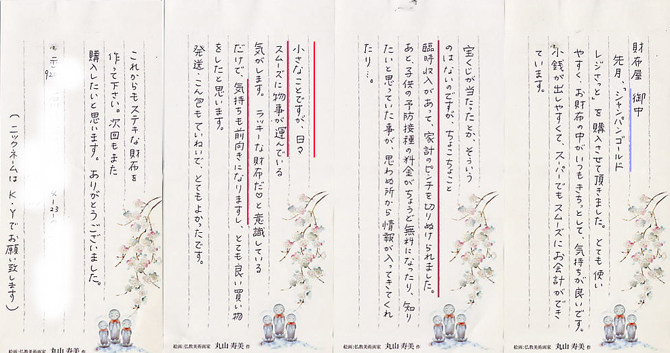 財布屋 御中
先月、「シャンパンゴールド
レジさっと」を購入させて頂きました。とても使い
やすく、お財布の中がいつもきちっとして、気持ちが良いです。
小銭が出しやすくて、スーパーでもスムーズにお会計ができ
ています。
宝くじが当たったとか、そういう
のはないのですが、ちょこちょこと
臨時収入があって、家計のピンチを切りぬけられました。
あと、子供の予防接種の料金がちょうど無料になったり、知り
たいと思っていた事が、思わぬ所から情報が入ってきてくれ
たり…。
小さなことですが、日々
スムーズに物事が運んでいる
気がします。ラッキーな財布だ♡と意識している
だけで、気持ちも前向きになりますし、とても良い買い物
をしたと思います。
発送・こん包もていねいで、とてもよかったです。
これからもステキな財布を
作って下さい。次回もまた
購入したいと思います。ありがとうございました。
(ニックネームは K.Yでお願い致します)
絵画:仏教美術画家 丸山 寿美 作
絵画:仏教美術画家 丸山 寿美 作
絵画:仏教美術画家 丸山 寿美 作
絵画:仏教美術画家 丸山 寿美 作